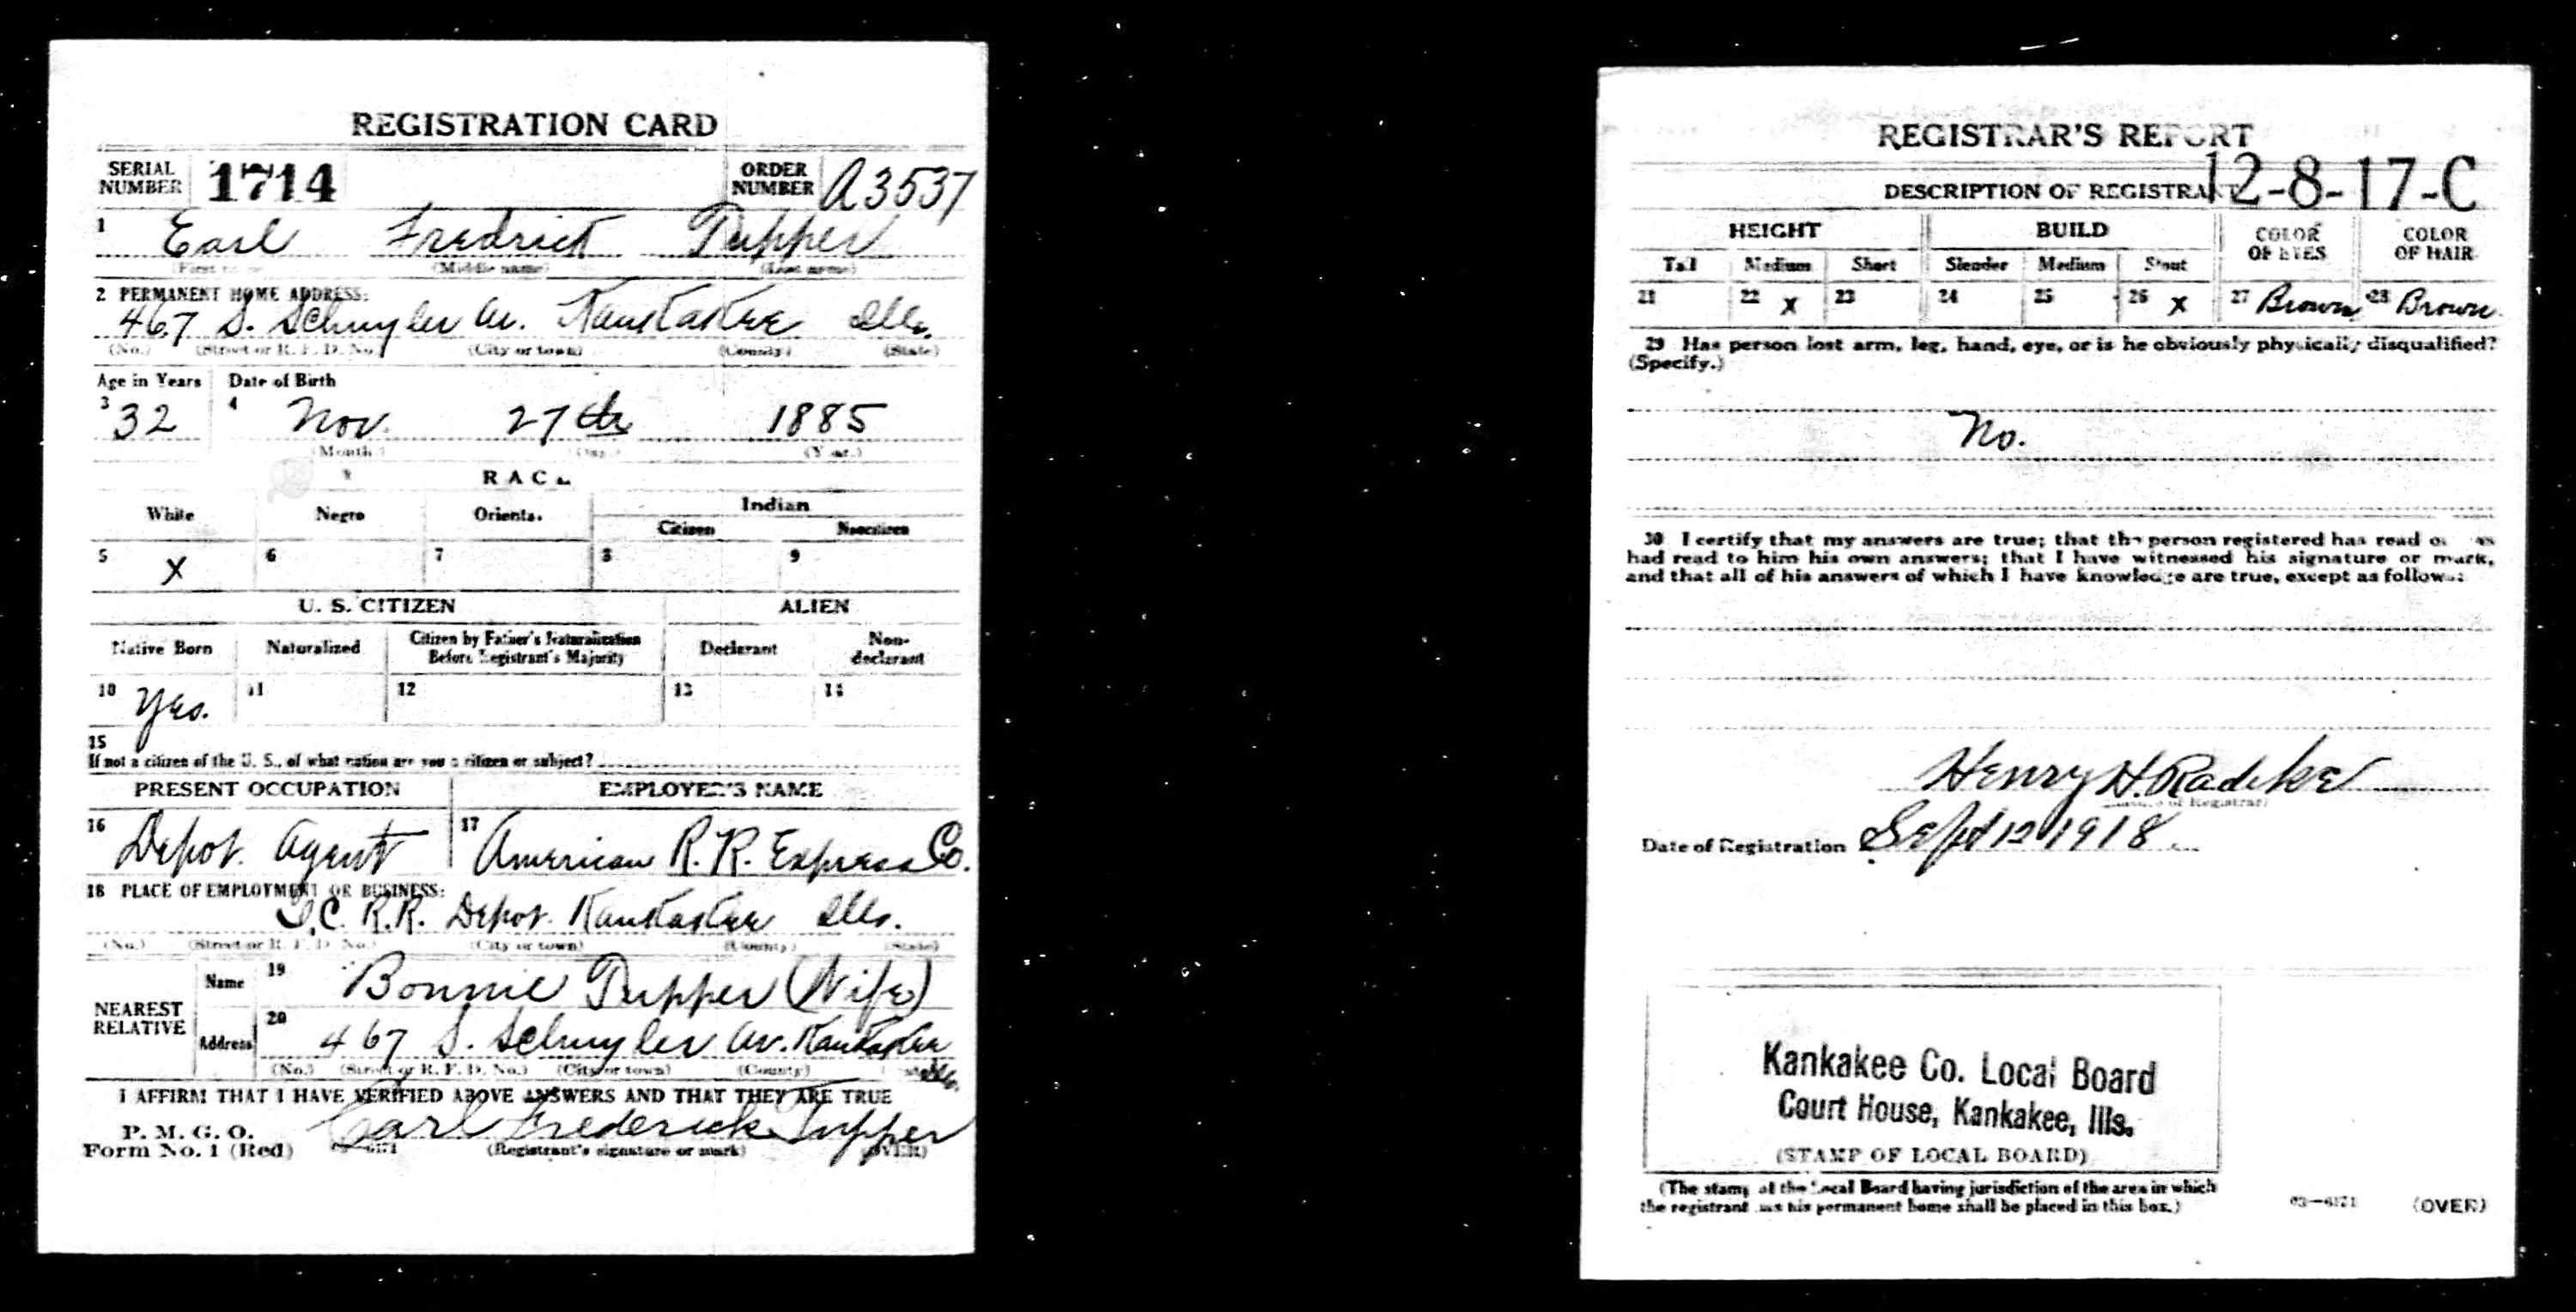 REGISTRATION CARD
SERIAL NUMBER 1714 ORDER NUMBER A3537
1 Earl Fredrick Tupper
(Middle name) (Last name)
2 PERMANENT HOME ADDRESS:
467 S. Schuyler Av. Kankakee Ills.
(No.) (Street or R. F. D. No.) (City or town) (County) (State)
Age in Years Date of Birth
3 32 4 Nov. 27th 1885
(Month) (Day) (Year)
RACE
White Negro Oriental Indian
Citizen Noncitizen
5 X 6 7 8 9
U. S. CITIZEN ALIEN
Native Born Naturalized Citizen by Father's Naturalization Before Registrant's Majority Declarant Non-declarant
10 Yes. 11 12 13 14
15
If not a citizen of the U. S., of what nation are you a citizen or subject?
PRESENT OCCUPATION EMPLOYER'S NAME
16 Depot Agent 17 American R.R. Express Co.
18 PLACE OF EMPLOYMENT OR BUSINESS:
I.C. R.R. Depot. Kankakee Ills.
(No.) (Street or R. F. D. No.) (City or town) (County) (State)
NEAREST RELATIVE
Name 19 Bonnie Tupper (Wife)
Address 20 467 S. Schuyler Av. Kankakee Ills.
(No.) (Street or R. F. D. No.) (City or town) (County)
I AFFIRM THAT I HAVE VERIFIED ABOVE ANSWERS AND THAT THEY ARE TRUE
P. M. G. O.
Form No. 1 (Red) Earl Frederick Tupper
(Registrant's signature or mark) (OVER)
REGISTRAR'S REPORT
12-8-17-C
DESCRIPTION OF REGISTRANT
HEIGHT BUILD COLOR OF EYES COLOR OF HAIR
Tall Medium Short Slender Medium Stout
21 22 X 23 24 25 26 X 27 Brown 28 Brown
29 Has person lost arm, leg, hand, eye, or is he obviously physically disqualified?
(Specify.)
No.
30 I certify that my answers are true; that the person registered has read or has
had read to him his own answers; that I have witnessed his signature or mark,
and that all of his answers of which I have knowledge are true, except as follows:
Henry H. Radeke
(Signature of Registrar)
Date of Registration Sept 12 1918
Kankakee Co. Local Board
Court House, Kankakee, Ills.
(STAMP OF LOCAL BOARD)
(The stamp of the Local Board having jurisdiction of the area in which
the registrant has his permanent home shall be placed in this box.)
03—6171 (OVER)